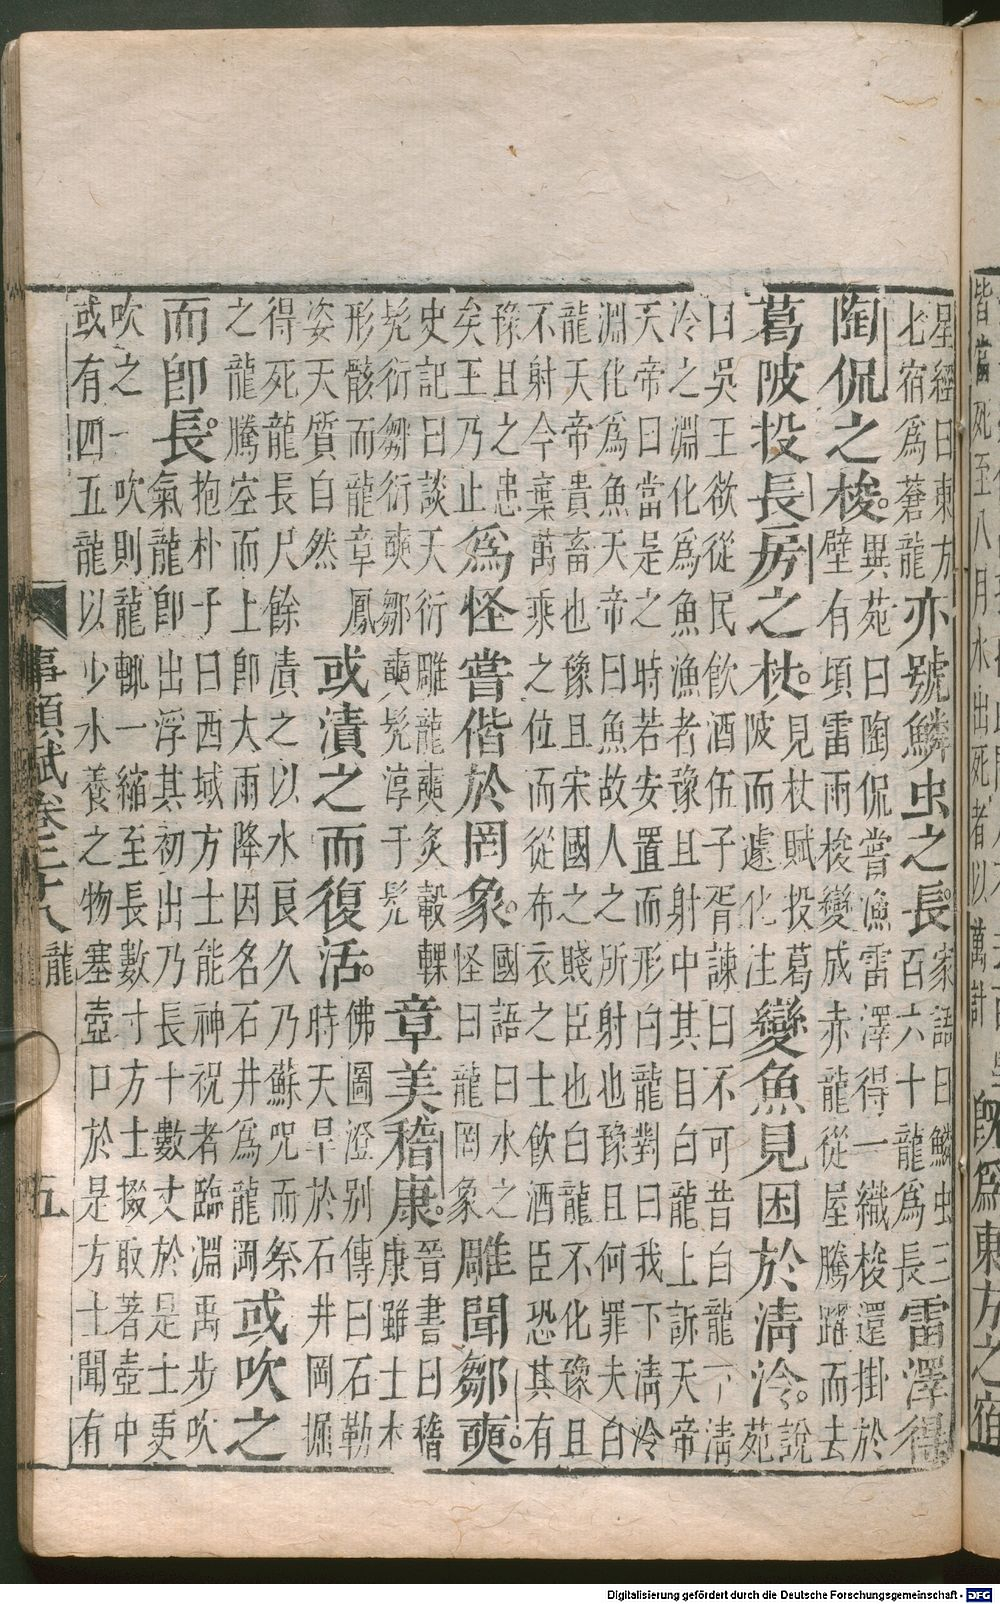 皆當死至八月水出死者以萬計
旣爲東方之宿
星經曰東方
七宿爲蒼龍
亦號鱗虫之長。
家語曰鱗虫三
百六十龍爲長
雷澤得
陶侃之梭。
異苑曰陶侃嘗漁雷澤得一織梭還掛於
壁有頃雷雨梭變成赤龍從屋騰躍而去
葛陂投長房之杖。
見杖賦投葛
陂而遽化注
變魚見困於淸泠。
說
苑
曰吳王欲從民飮酒伍子胥諫曰不可昔白龍下淸
泠之淵化爲魚漁者豫且射中其目白龍上訴天帝
天帝曰當是之時若安置而形白龍對曰我下淸泠
淵化爲魚天帝曰魚故人之所射也豫且何罪夫白
龍天帝貴畜也豫且宋國之賤臣也白龍不化豫且
不射今棄萬乘之位而從布衣之士飮酒臣恐其有
豫且之患
矣王乃止
爲怪嘗偕於罔象。
國語曰水之
怪曰龍罔象
雕聞鄒奭。
史記曰談天衍雕龍奭炙轂輠
髡衍鄒衍奭鄒奭髡淳于髡
章美嵇康。
晉書曰嵇
康雖土木
形骸而龍章鳳
姿天質自然
或漬之而復活。
佛圖澄别傳曰石勒
時天旱於石井岡掘
得死龍長尺餘漬之以水良久乃蘇咒而祭
之龍騰空而上卽大雨降因名石井爲龍岡
或吹之
而卽長。
抱朴子曰西域方士能神祝者臨淵禹步吹
氣龍卽出浮其初出乃長十數丈於是士更
吹之一吹則龍輒一縮至長數寸方士掇取著壺中
或有四五龍以少水養之物塞壺口於是方士聞有
事類賦卷二十八 龍 五
Digitalisierung gefördert durch die Deutsche Forschungsgemeinschaft - DFG